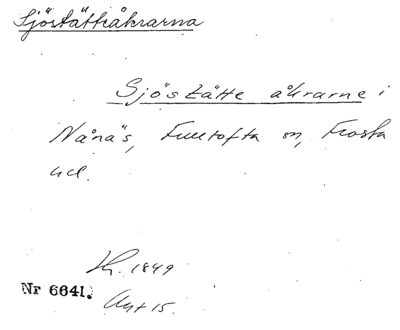 Sjöstätteåkrarna
Sjöstätte åkrarne i
Nånäs, Fulltofta sn, Frosta
hd.
1849
Nr 6641.
Akt 15.